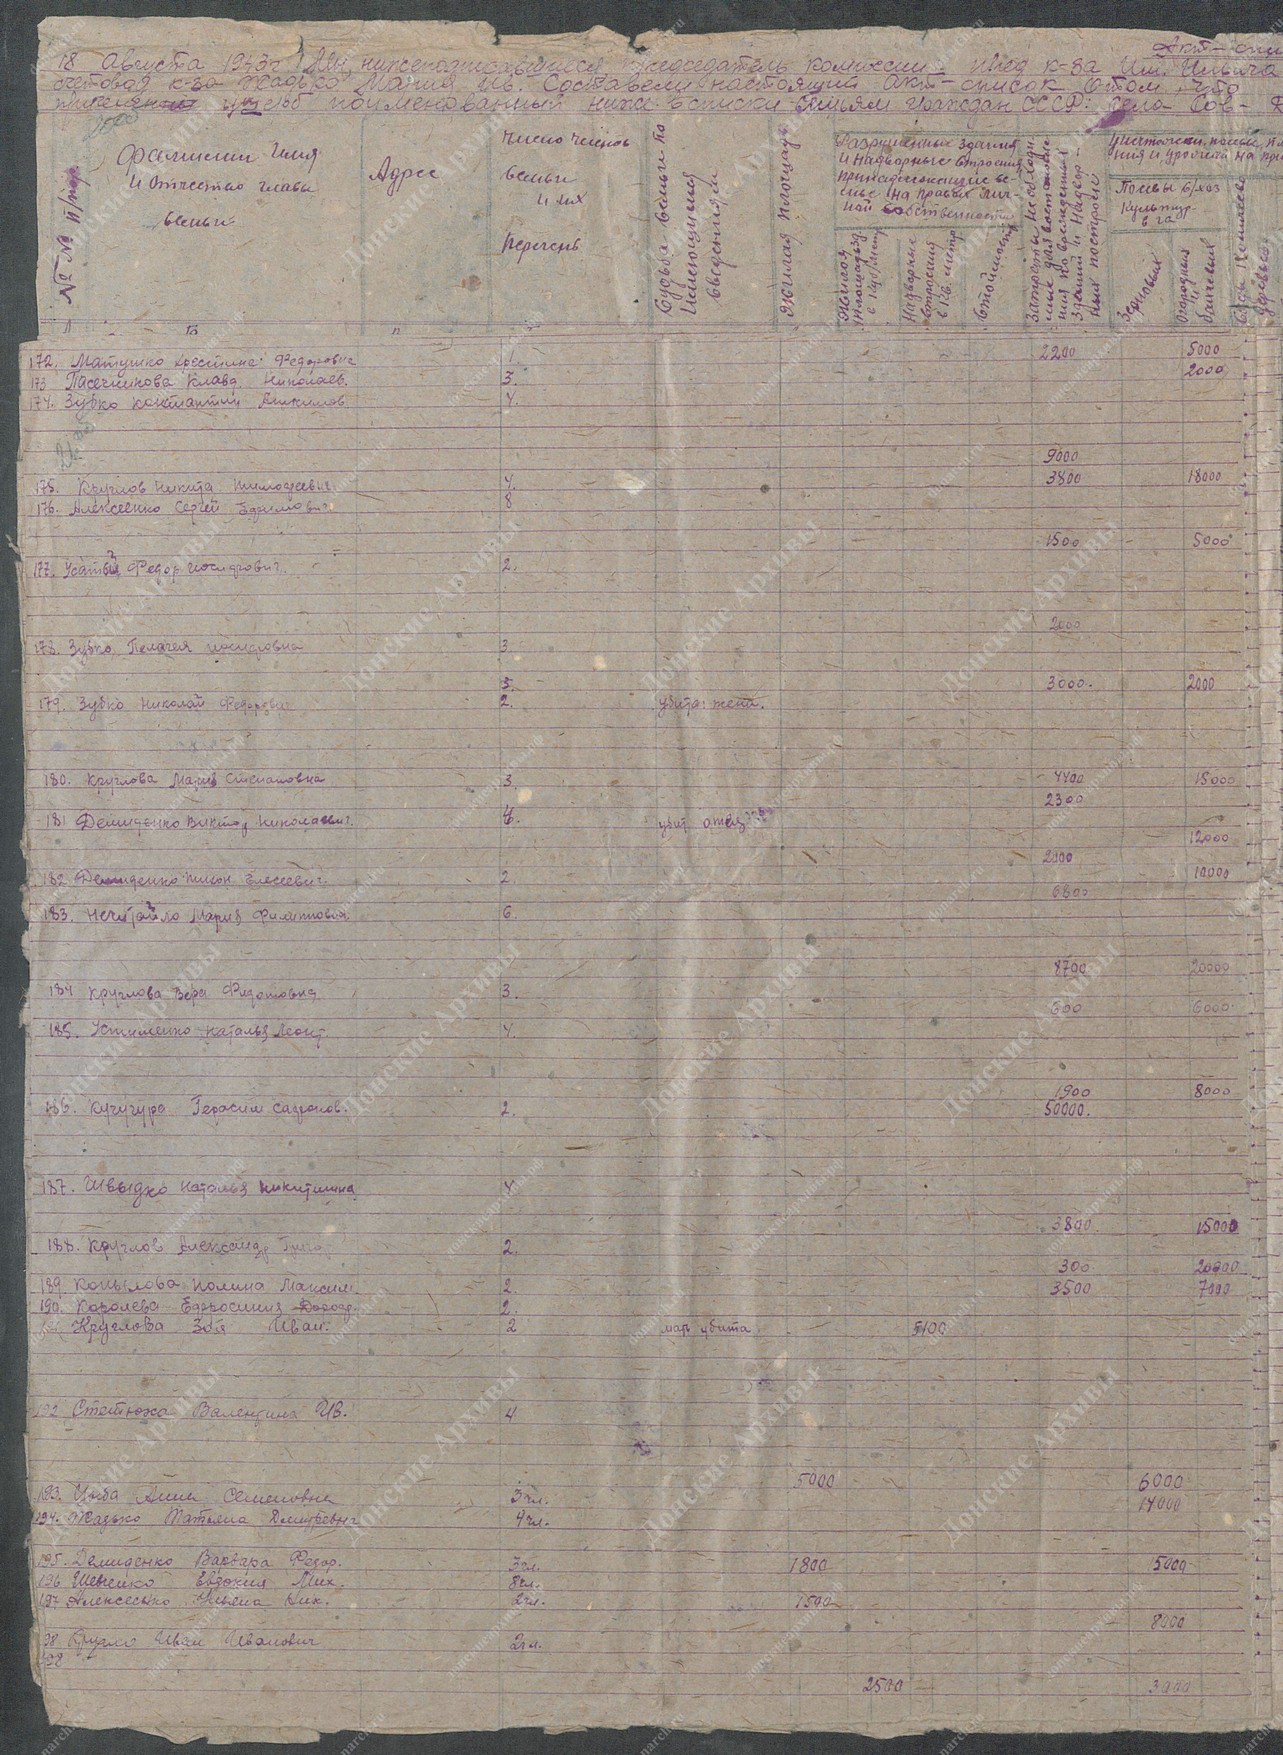 Акт-спи
18 Августа 1943г Мы, нижеподписавшиеся председатель комиссии пред к-за Им. Ильича
счетовод к-за Жадько Мария Ив. Составели настоящий Акт-список Отом, что
ущерб поименованный ниже в списки семьям граждан СССР: села Сов-
№ № п/пор.
Фамилии Имя
и Отчество главы
семьи
Адрес
Число членов
семьи
и их
перечень
Судьба семьи по
имеющимся
сведениям
Жилая площадь
Разрушенные здания
и надворные строения
принадлежащие се-
мье на правах лич-
ной собственности
Жилая
площадь
в куб/метр
Надворные
строения
в кв. метр
Стоимость
Затраты необходи-
мые для восстановле-
ния поврежденных
зданий и надвор-
ных построек
Посевы с/хоз
культур
в га
Зерновых
Огородных
и
бахчевых
172. Матушко Кресттина Федоровна 1. 2200 5000
173 Пасечникова Клавд. Николаев. 3. 2000
174. Зубко Константин 4.
9000
175. Круглов Никита Тимофеевич. 4. 3800 18000
176. Алексеенко Сергей Ефимович. 8
1500 5000
177. Усатый Федор Иосифович. 2.
2000
178. Зубко Пелагея Иосифовна 3.
5. 3000. 2000
179. Зубко Николай Федорович 2. убита жена.
180. Круглова Мария Степановна 3. 4400 15000
2300
181 Демиденко Виктор Николаевич. 4. убит отец
12000
2000
182 Демиденко Тихон Елесеевич. 2. 10000
6800
183. Нечитайло Мария Филипповна 6.
8700 20000
184 Круглова Вера Федотовна 3.
600 6000
185. Устименко Наталья Леонт. 4.
1900 8000
186. Кучугура Герасим Сафонов. 2. 50000.
187. Швыдко Наталья Никитишна 4.
3800 15000
188. Круглов Александр Григо 2.
300 20000
189. Копылова Полина Максим. 2. 3500 7000
190. Королева Ефросиния Дорофе. 2.
Круглова Зоя Иван. 2 мать убита. 5100
192 Стетюха Валентина Ив. 4
5000 6000
193. Цыба Анна Семеновна 3чл. 14000
194. Жадько Татьяна Дмитревна 4чл.
195. Демиденко Варвара Федор. 3чл. 1800 5000
196 Шевченко Евдокия Мих. 8чл.
197 Алексеенко Ульяна Мих. 2чл. 1500
8000
98 Кругло Иван Иванович 2чл.
98
2500 3000